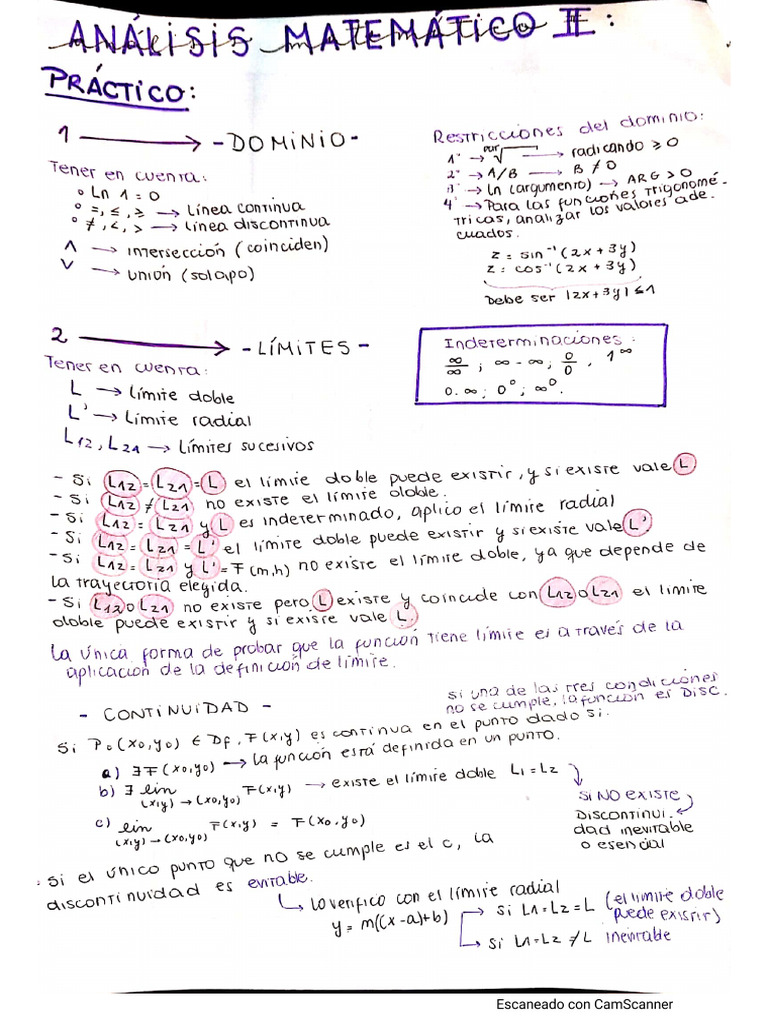 ANÁLISIS MATEMÁTICO II:
PRÁCTICO:
1 → - DOMINIO -
Tener en cuenta:
° Ln 1 = 0
° =, ≤, ≥ → Línea continua
° ≠, <, > → Línea discontinua
∧ → intersección (coinciden)
∨ → unión (solapo)
Restricciones del dominio:
1° → par√ → radicando ≥ 0
2° → A/B → B ≠ 0
3° → ln (argumento) → ARG > 0
4° → Para las funciones trigonomé-
tricas, analizar los valores ade-
cuados.
z = sin⁻¹ (2x + 3y)
z = cos⁻¹ (2x + 3y)
Debe ser |2x+3y| ≤ 1
2 → - LÍMITES -
Tener en cuenta:
L → Límite doble
L' → Límite radial
L12, L21 → Límites sucesivos
Indeterminaciones:
∞/∞ ; ∞ - ∞ ; 0/0 , 1^∞
0.∞ ; 0⁰ ; ∞⁰.
- Si L12 = L21 = L el límite doble puede existir, y si existe vale L
- Si L12 ≠ L21 no existe el límite doble.
- Si L12 = L21 y L es indeterminado, aplico el límite radial
- Si L12 = L21 = L' el límite doble puede existir y si existe vale L'
- Si L12 = L21 y L' = F(m,h) no existe el límite doble, ya que depende de
la trayectoria elegida.
- Si L12 o L21 no existe pero L existe y coincide con L12 o L21 el limite
doble puede existir y si existe vale L.
La única forma de probar que la función tiene límite es a través de la
aplicación de la definición de límite.
- CONTINUIDAD -
si una de las tres condiciones
no se cumple, la función es DISC.
Si P₀(x₀,y₀) ∈ Df, F(x,y) es continua en el punto dado si.
a) ∃ F(x₀,y₀) → La función está definida en un punto.
b) ∃ lim F(x,y) → existe el límite doble L1 = L2
(x,y) → (x₀,y₀)
c) lim F(x,y) = F(x₀,y₀)
(x,y) → (x₀,y₀)
SI NO EXISTE
DISCONTINUI-
dad inevitable
o esencial
Si el único punto que no se cumple es el c, la
discontinuidad es evitable.
↳ Lo verifico con el límite radial
y = m((x-a)+b)
→ si L1=L2=L (el limite doble
puede existir)
→ si L1=L2≠L inevitable
Escaneado con CamScanner